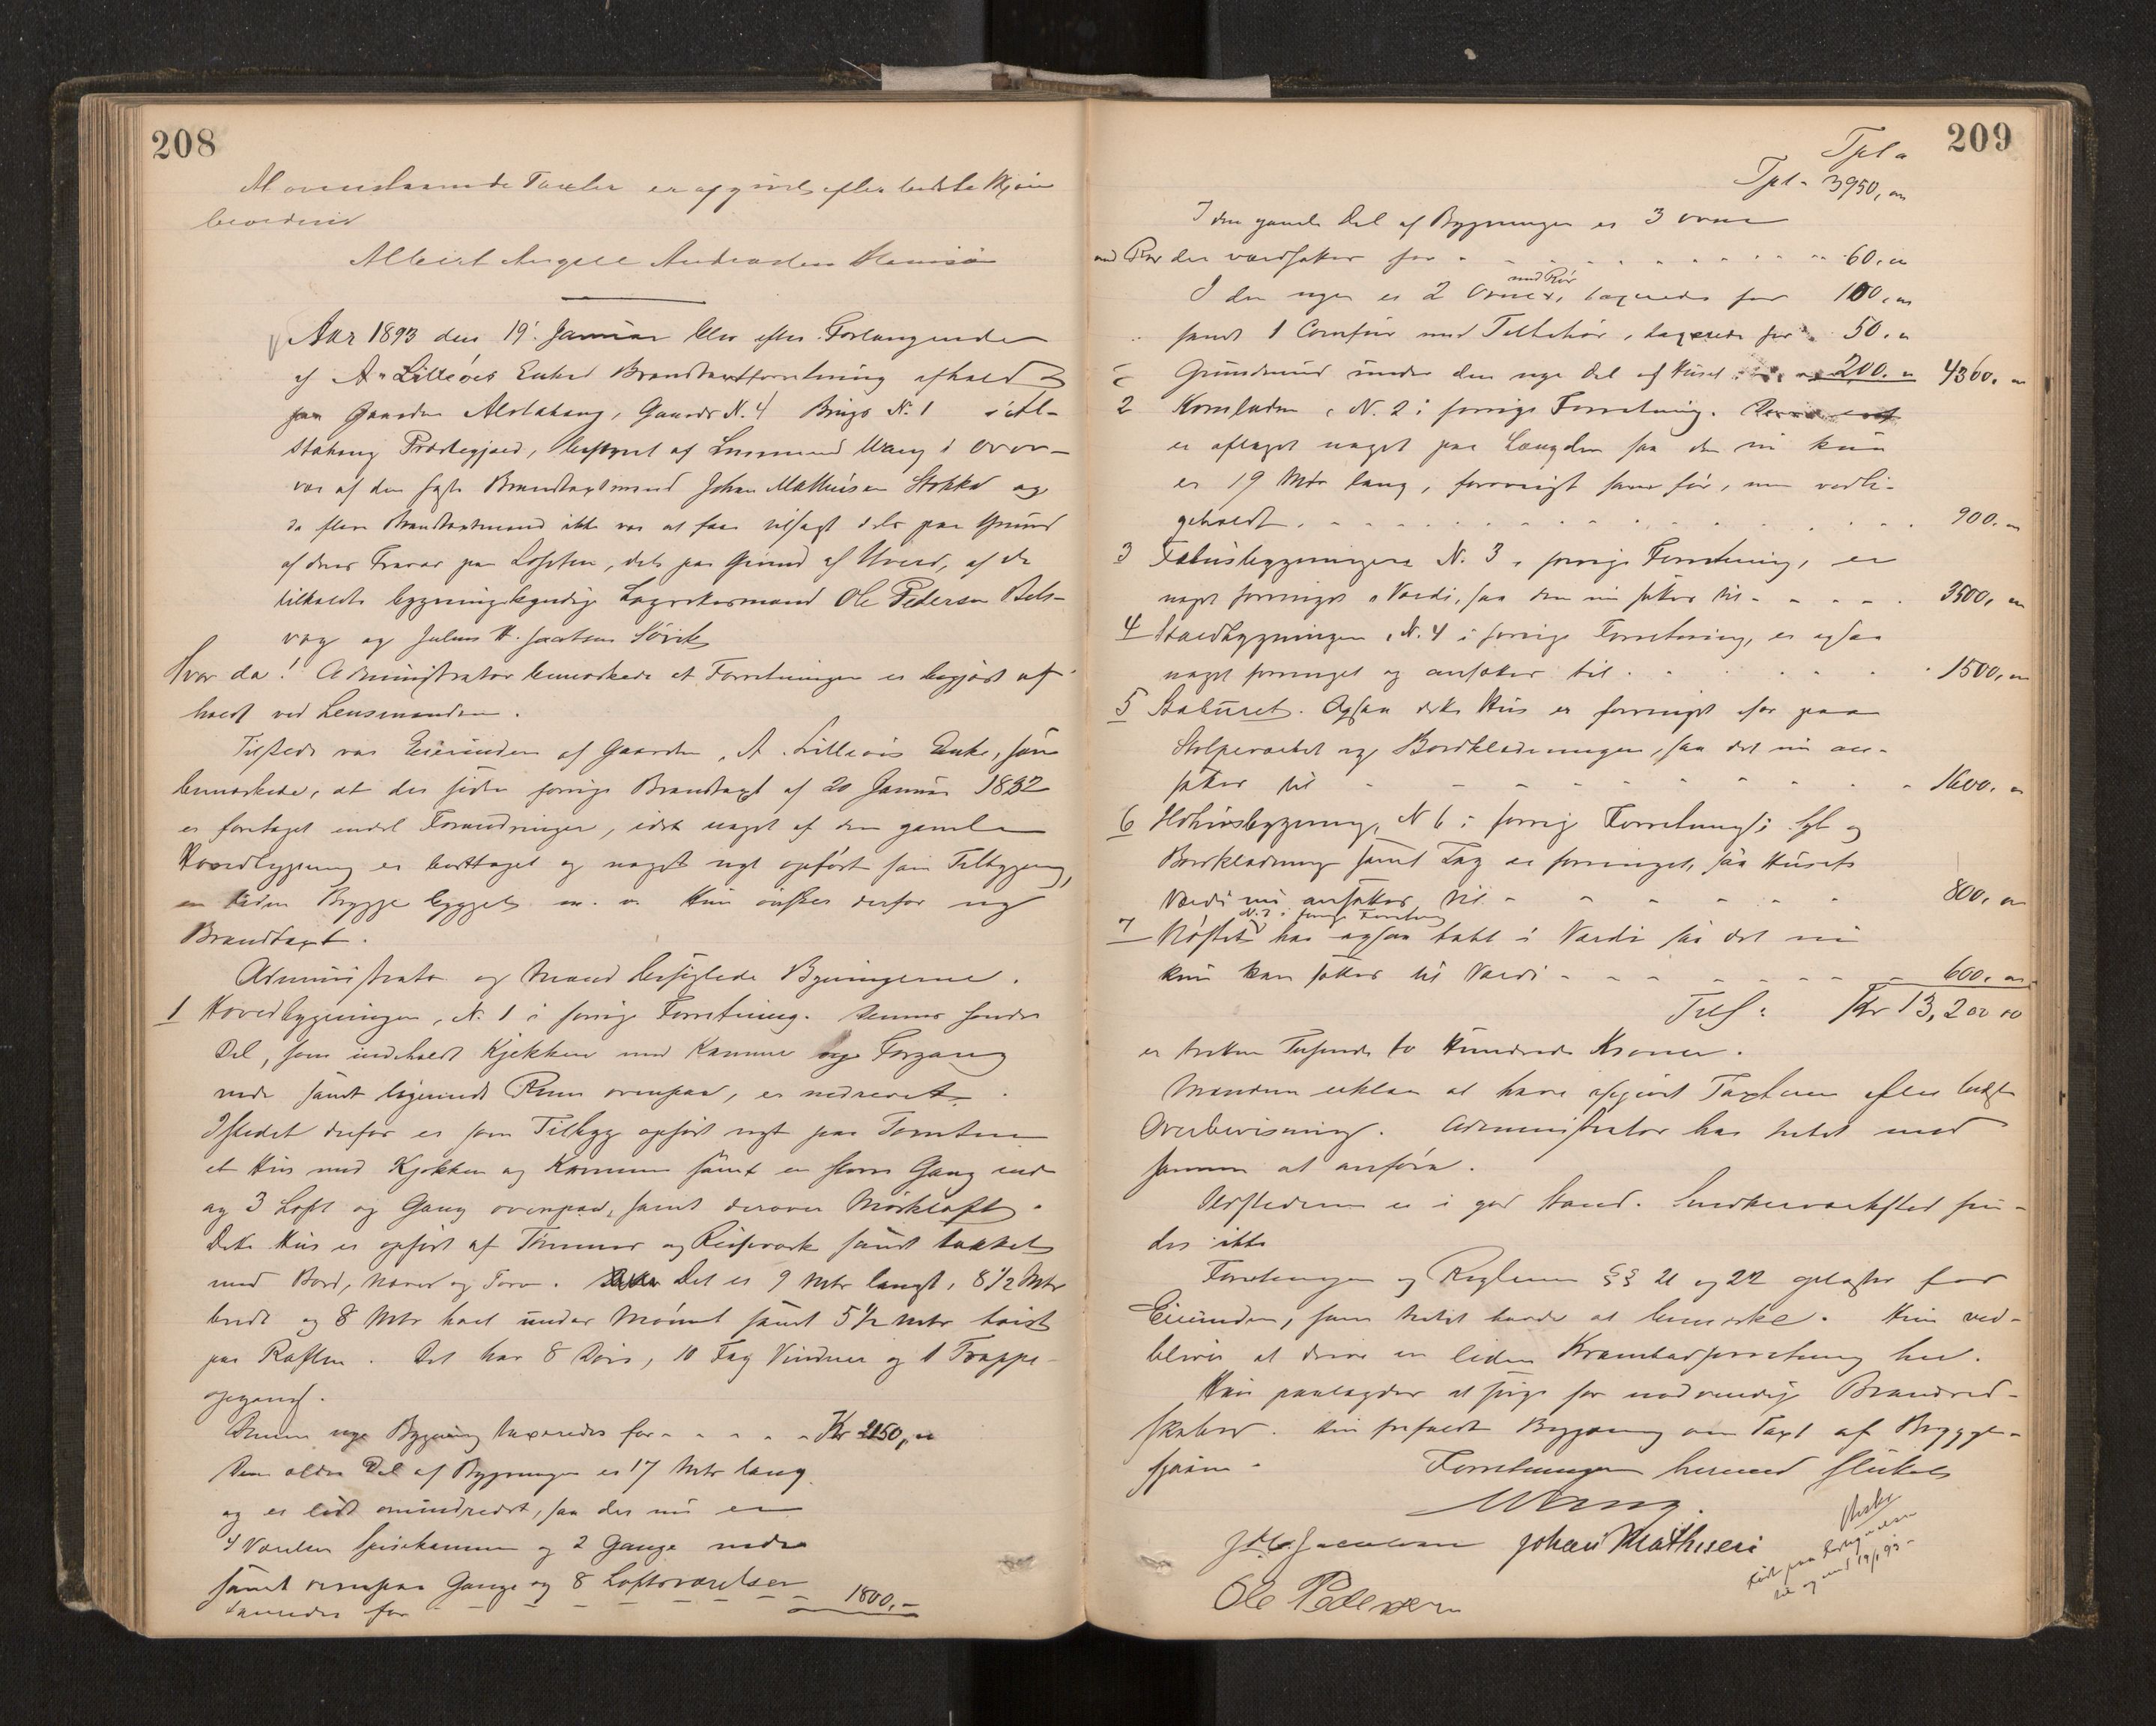 208
At ovenstaaende Taxter er afgivet efter bedste Skjøn
bevidnes
Albert Angell Andreassen
Aar 1893 den 19. Januar blev efter Forlangende
af A. Lilleøis Enke Brandtaxtforretning afholdt
paa Gaarden Alstahaug, Gaards N. 4 Brugs N. 1 i Al-
stahaug Præstegjæld, bestyret af Lensmand Wang i Over-
vær af den faste Brandtaxtmand Johan Mathisen Stokka og
da flere Brandtaxtmænd ikke var at faa tilsagt dels paa Grund
af deres Fravær paa Lofoten, dels paa Grund af Uveir, af de
tilkaldte bygningskyndige Lagrettesmænd Ole Pedersen Bels-
vaag og Julius H. Jacobsen Sørvik
Hvor da! Administrator bemærkede at Forretningen er begjært af-
holdt ved Lensmanden.
Tilstede var Eierinden af Gaarden, A. Lilleøis Enke, som
bemærkede, at der siden forrige Brandtaxt af 20 Januar 1882
er foretaget endel Forandringer, idet noget af den gamle
Hovedbygning er borttaget og noget nyt opført som Tilbygning,
en liden Brygge bygget m. v. Hun ønsker derfor ny
Brandtaxt.
Administrator og Mænd besigtede Bygningerne.
1 Hovedbygningen, N. 1 i forrige Forretning. Dennes søndre
Del, som indeholdt Kjøkken med Kammer og Forgang
nede samt lignende Rum ovenpaa, er nedrevet.
Istedet derfor er som Tilbygg opført nyt paa Tomten
et Hus med Kjøkken og Kammer samt en større Gang nede
og 3 Loft og Gang ovenpaa, samt derover Mørkloft.
Dette Hus er opført af Tømmer og Reisverk samt tækket
med Bord, Næver og Torv. Det er 9 Mtr langt, 8 1/2 Mtr
bredt og 8 Mtr høit under Mønet samt 5 1/2 Mtr høit
paa Raften. Det har 8 Døre, 10 Fag Vinduer og 1 Trappe-
opgang.
Denne nye Bygning taxeredes for - - - - Kr 2150,00
Den ældre Del af Bygningen er 17 Mtr lang
og er lidt omindredet, saa der nu er
4 Værelser Spisekammer og 2 Gange nede
samt ovenpaa Gange og 8 Loftsværelser
taxeredes for - - - - - - 1800,-
209
Tpt a
Tpt - 3950,00
I den gamle Del af Bygningen er 3 ovne
med Rør der værdsættes for - - - - 60,00
med Rør
I den nye er 2 Ovner, taxeredes for 100,00
samt 1 Comfur med Tilbehør, taxerede for 50,00
Grundmur under den nye Del af Huset 200,00 4360,00
2 Kornladen, N. 2 i forrige Forretning.
er aftaget noget paa Længden saa den nu kun
er 19 Mtr lang, forøvrigt som før, men vedli-
geholdt. - - - - 900,00
3 Fæhusbygningen N. 3 i forrige Forretning, er
noget forringet i Værdi, saa den nu sættes til - - - - 3500,00
4 Staldbygningen, N. 4 i forrige Forretning, er ogsaa
noget forringet og ansættes til - - - 1500,00
5 Staburet. Ogsaa dette Hus er forringet især paa
Stolpeværket og Bordklædningen, saa det nu an-
sættes til - - - - 1600,00
6 N 6 i forrige Forretning, og
Bordklædning samt Tag er forringet, saa Husets
Værdi nu ansættes til - - - - 800,00
N. 7 i forrige Forretning
7 Nøstet har ogsaa tabt i Værdi saa det nu
kun kan sættes til Værdi - - - - 600,00
Tils: Kr 13,200 00
er tretten Tusinde to Hundrede Kroner.
Mændene erklær at have afgivet Taxterne efter bedste
Overbevisning. Administrator har intet mod
samme at anføre.
Ildstederne er i god Stand. Snedkerværksted fin-
des ikke
Forretningen og Reglerne §§ 21 og 22 oplæstes for
Eierinden, som intet havde at bemærke. Hun ved-
bliver at drive en liden Krambodforretning her.
Hun paalagdes at sørge for nødvendige Brandred-
skaber. Hun frafaldt Begjæring om Taxt af Brygge-
sjaaen. Forretningen hermed sluttet
Wang.
J. H. Jacobsen Johan Mathisen
Ole Pedersen
19/1 93-